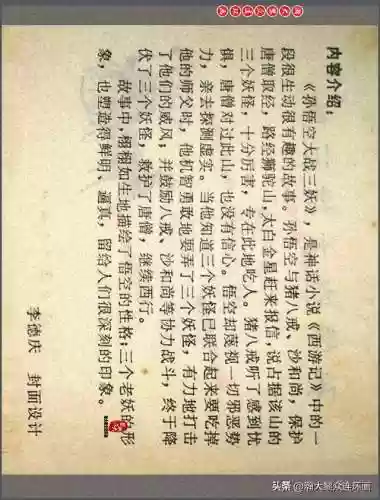 内容介绍：
《孙悟空大战三妖》，是神话小说《西游记》中的一
段很生动很有趣的故事。孙悟空与猪八戒、沙和尚，保护
唐僧取经，路经狮驼山，太白金星赶来报信，说占据该山的
三个妖怪，十分厉害，专在此地吃人。猪八戒听了感到忧
惧，唐僧对过此山，也没有信心。悟空却蔑视一切邪恶势
力，亲去探测虚实。当他知道三个妖怪已联合起来要吃掉
他的师父时，他机智勇敢地耍弄了三个妖怪，有力地打击
了他们的威风；并鼓励八戒、沙和尚等协力战斗，终于降
伏了三个妖怪，救护了唐僧，继续西行。
故事中，栩栩如生地描绘了悟空的性格；三个老妖的形
象，也塑造得鲜明、逼真，留给人们很深刻的印象。
李德庆 封面设计
头条 @瀚大聚众连环画